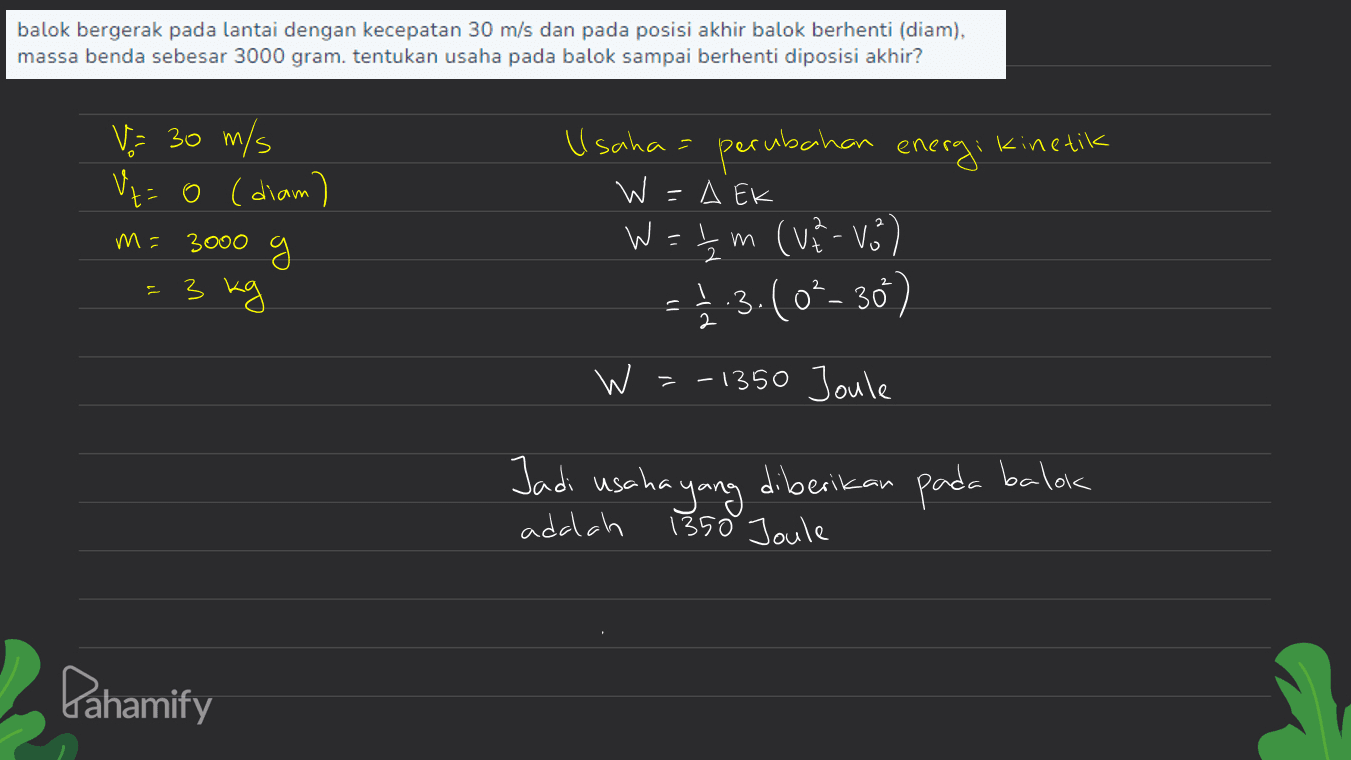 balok bergerak pada lantai dengan kecepatan 30 m/s dan pada posisi akhir balok berhenti (diam),
massa benda sebesar 3000 gram. tentukan usaha pada balok sampai berhenti diposisi akhir?
V₀= 30 m/s
Vt= 0 (diam)
m= 3000 g
= 3 kg
Usaha = perubahan energi kinetik
W = Δ EK
W = 1/2 m (Vt² - V₀²)
= 1/2 .3. (0² - 30²)
W = -1350 Joule
Jadi usaha yang diberikan pada balok
adalah 1350 Joule
Pahamify